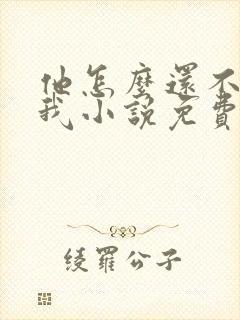 他怎麼還不
我小說免費
綾羅公子